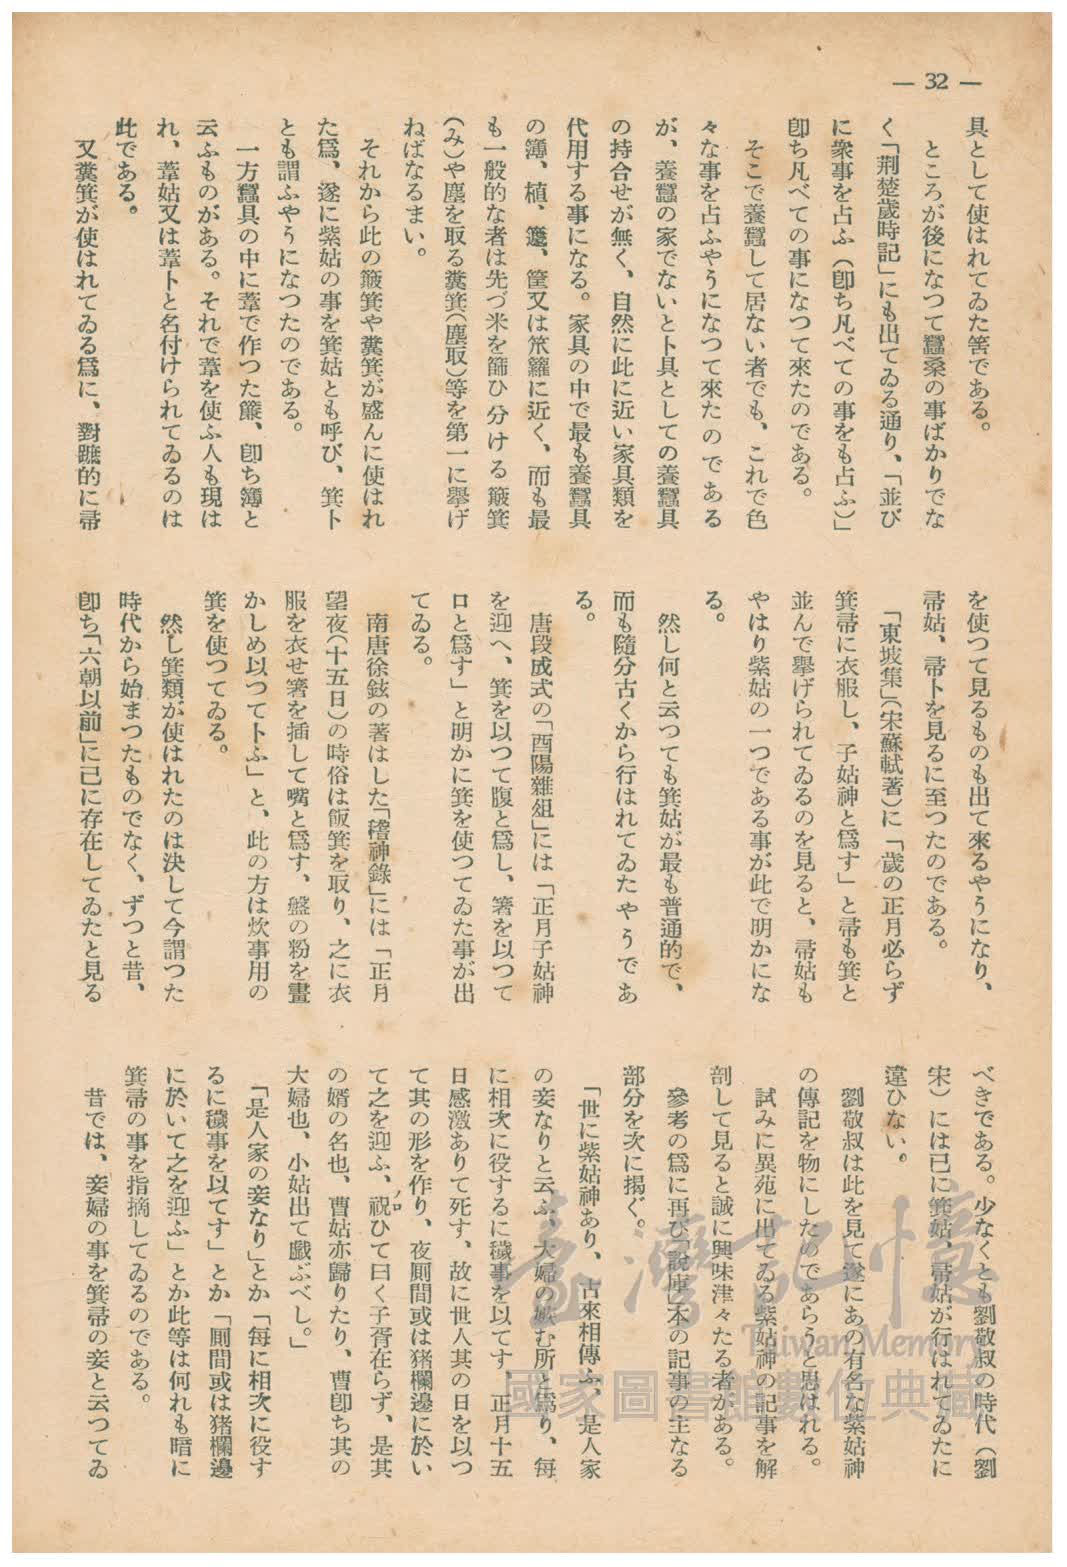 — 32 —
具として使はれてゐた筈である。
ところが後になつて蠶桑の事ばかりでな
く「荆楚歲時記」にも出てゐる通り、「並び
に衆事を占ふ（卽ち凡べての事をも占ふ）」
卽ち凡べての事になつて來たのである。
そこで養蠶して居ない者でも、これで色
々な事を占ふやうになつて來たのである
が、養蠶の家でないと卜具としての養蠶具
の持合せが無く、自然に此に近い家具類を
代用する事になる。家具の中で最も養蠶具
の簿、植、籧、筐又は笊籮に近く、而も最
も一般的な者は先づ米を篩ひ分ける簸箕
（み）や塵を取る糞箕（塵取）等を第一に擧げ
ねばなるまい。
それから此の簸箕や糞箕が盛んに使はれ
た爲、遂に紫姑の事を箕姑とも呼び、箕卜
とも謂ふやうになつたのである。
一方蠶具の中に葦で作つた簾、卽ち簿と
云ふものがある。それで葦を使ふ人も現は
れ、葦姑又は葦卜と名付けられてゐるのは
此である。
又糞箕が使はれてゐる爲に、對蹠的に帚
を使つて見るものも出て來るやうになり、
帚姑、帚卜を見るに至つたのである。
「東坡集」（宋蘇軾著）に「歲の正月必らず
箕帚に衣服し、子姑神と爲す」と帚も箕と
並んで擧げられてゐるのを見ると、帚姑も
やはり紫姑の一つである事が此で明かにな
る。
然し何と云つても箕姑が最も普通的で、
而も隨分古くから行はれてゐたやうであ
る。
唐段成式の「酉陽雜俎」には「正月子姑神
を迎へ、箕を以つて腹と爲し、箸を以つて
口と爲す」と明かに箕を使つてゐた事が出
てゐる。
南唐徐鉉の著はした「稽神錄」には「正月
望夜（十五日）の時俗は飯箕を取り、之に衣
服を衣せ箸を插して嘴と爲す、盤の粉を畫
かしめ以つて卜ふ」と、此の方は炊事用の
箕を使つてゐる。
然し箕類が使はれたのは決して今謂つた
時代から始まつたものでなく、ずつと昔、
卽ち「六朝以前」に已に存在してゐたと見る
べきである。少なくとも劉敬叔の時代（劉
宋）には已に箕姑、帚姑が行はれてゐたに
違ひない。
劉敬叔は此を見て遂にあの有名な紫姑神
の傳記を物にしたのであらうと思はれる。
試みに異苑に出てゐる紫姑神の記事を解
剖して見ると誠に興味津々たる者がある。
參考の爲に再び說庫本の記事の主なる
部分を次に揭ぐ。
「世に紫姑神あり、古來相傳ふ、是人家
の妾なりと云ふ、大婦の嫉む所と爲り、每
に相次に役するに穢事を以てす　正月十五
日感激ありて死す、故に世人其の日を以つ
て其の形を作り、夜厠間或は猪欄邊に於い
て之を迎ふ、祝ひて曰く子胥在らず、是其
ノロ
の婿の名也、曹姑亦歸りたり、曹卽ち其の
大婦也、小姑出て戲ぶべし。」
「是人家の妾なり」とか「每に相次に役す
るに穢事を以てす」とか「厠間或は猪欄邊
に於いて之を迎ふ」とか此等は何れも暗に
箕帚の事を指摘してゐるのである。
昔では、妾婦の事を箕帚の妾と云つてゐ
臺灣記憶
Taiwan Memory
國家圖書館數位典藏